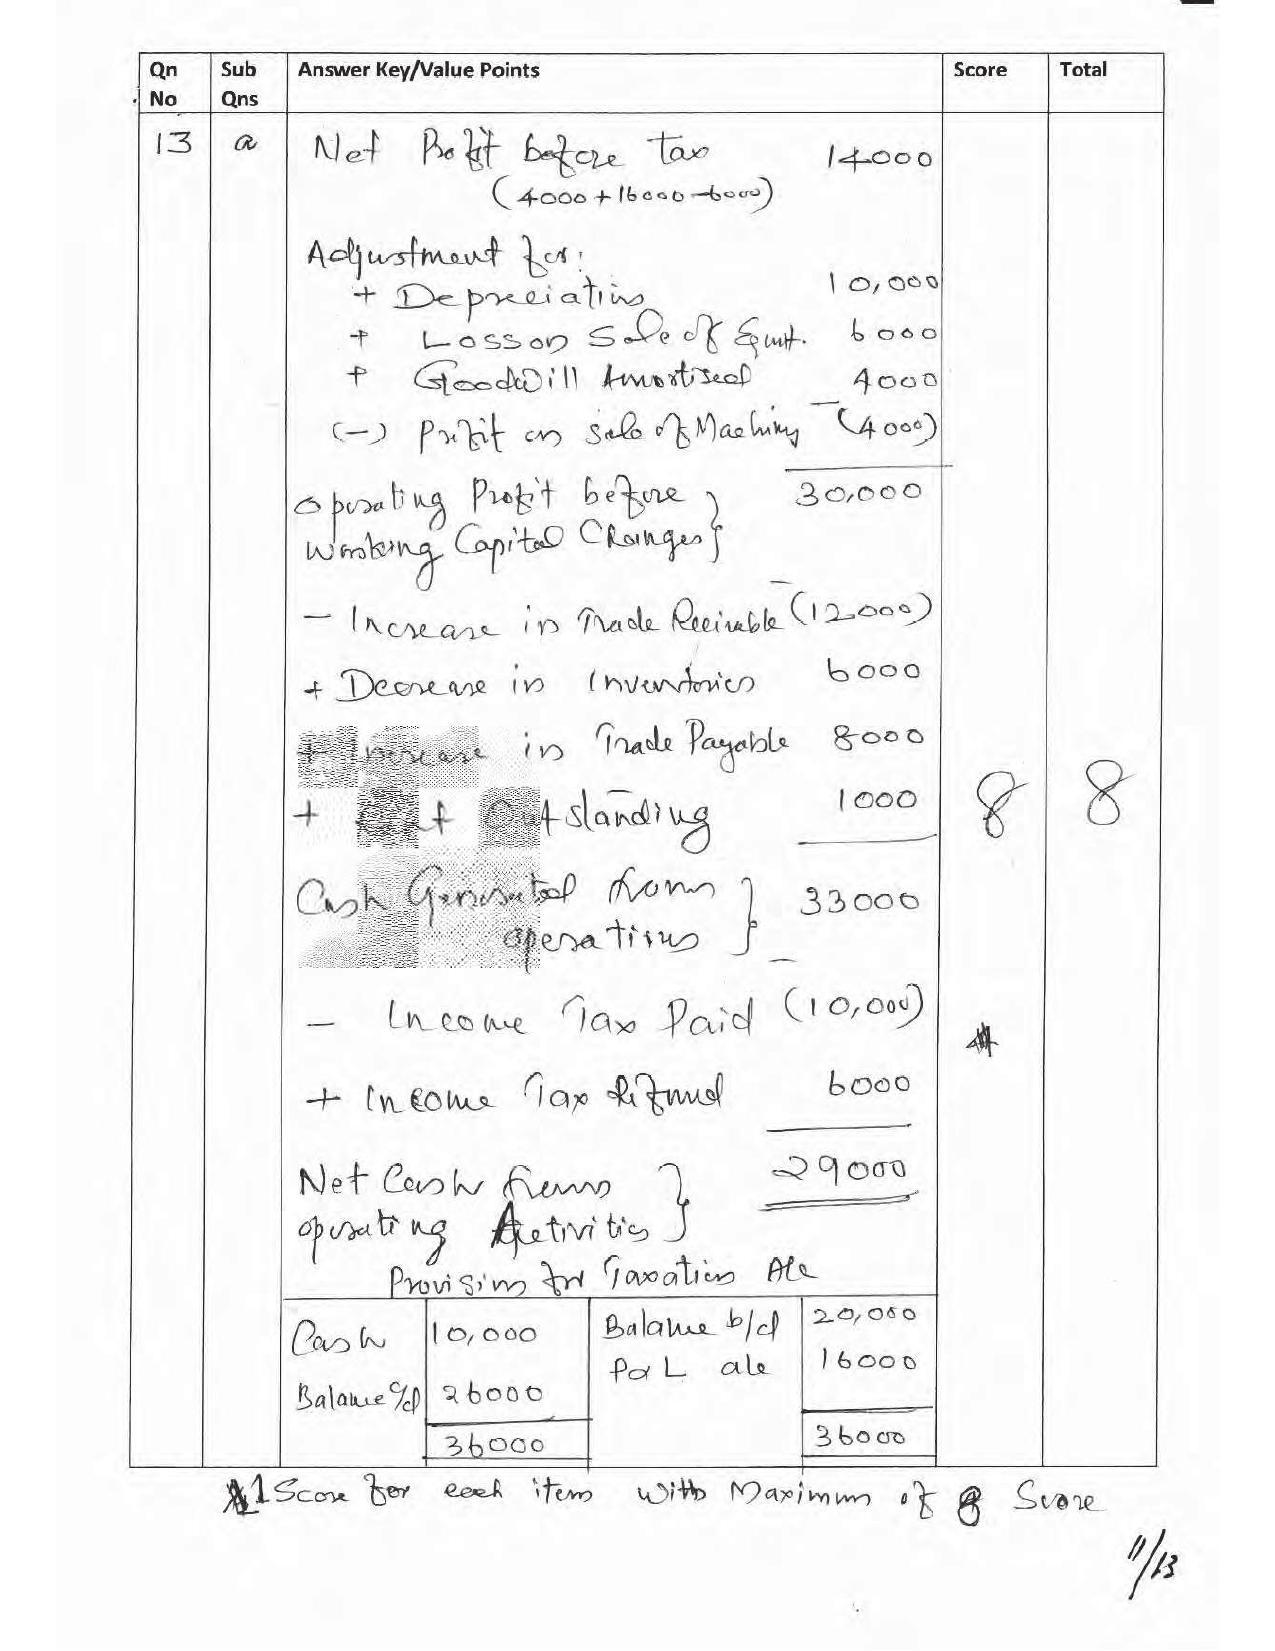 Qn No Sub Qns Answer Key/Value Points Score Total
13 a Net Profit before tax 14000
(4000 + 16000 - 6000)
Adjustment for:
+ Depreciation 10,000
+ Loss on Sale of Eqmt. 6000
+ Goodwill Amortised 4000
(-) Profit on sale of Machiny (4000)
Operating Profit before } 30,000
Working Capital Changes }
- Increase in Trade Receivable (12000)
+ Decrease in Inventories 6000
+ Increase in Trade Payable 8000
+ Outstanding 1000
8 8
Cash Generated from } 33000
operations }
- Income Tax Paid (10,000)
+ Income Tax Refund 6000
Net Cash from } 29000
operating Activities }
Provision for Taxation A/c
Cash 10,000 Balance b/d 20,000
P&L a/c 16000
Balance c/d 26000
36000 36000
1 Score for each item with Maximum of 8 Score
11/13